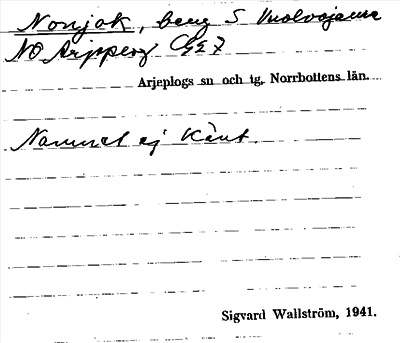 Nonjok, berg S Vuolvojaure
NO Arjeplog
Arjeplogs sn och tg. Norrbottens län.
Namnet ej känt.
Sigvard Wallström, 1941.